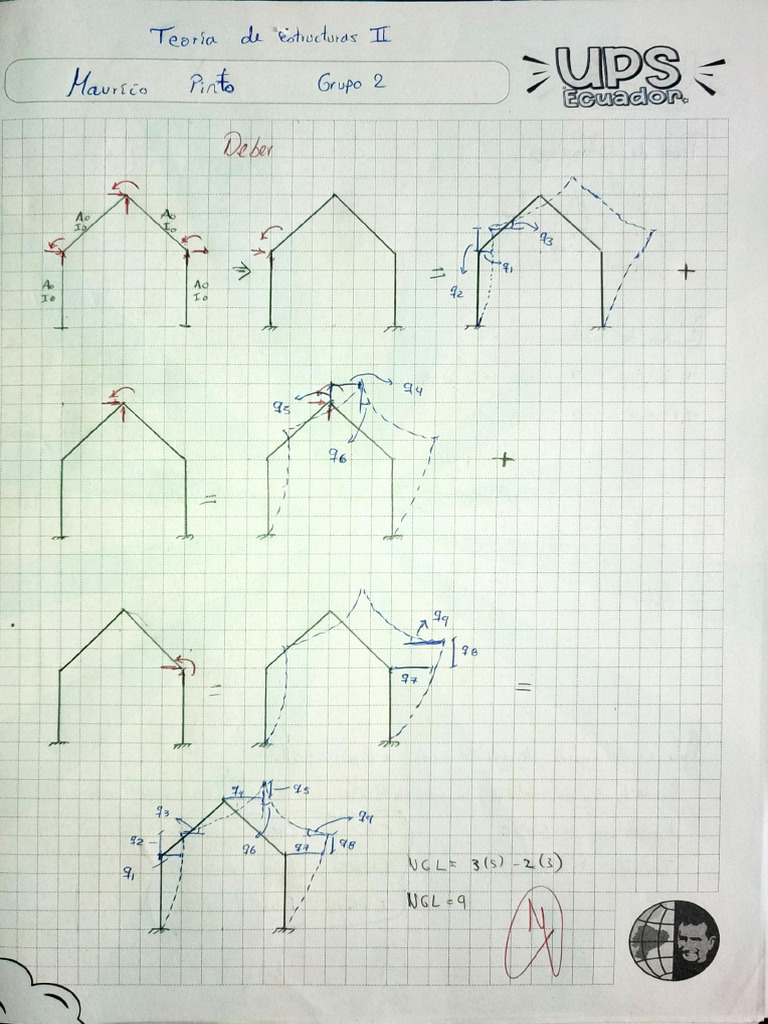 Teoría de estructuras II
Mauricio Pinto Grupo 2
UPS
Ecuador
Deber
Ao
Io
Ao
Io
Ao
Io
Ao
Io
⇒
=
q1
q2
q3
+
=
q4
q5
q6
+
=
q9
q8
q7
=
q4
q5
q3
q9
q2
q6
q7
q8
q1
NGL = 3(5) - 2(3)
NGL = 9